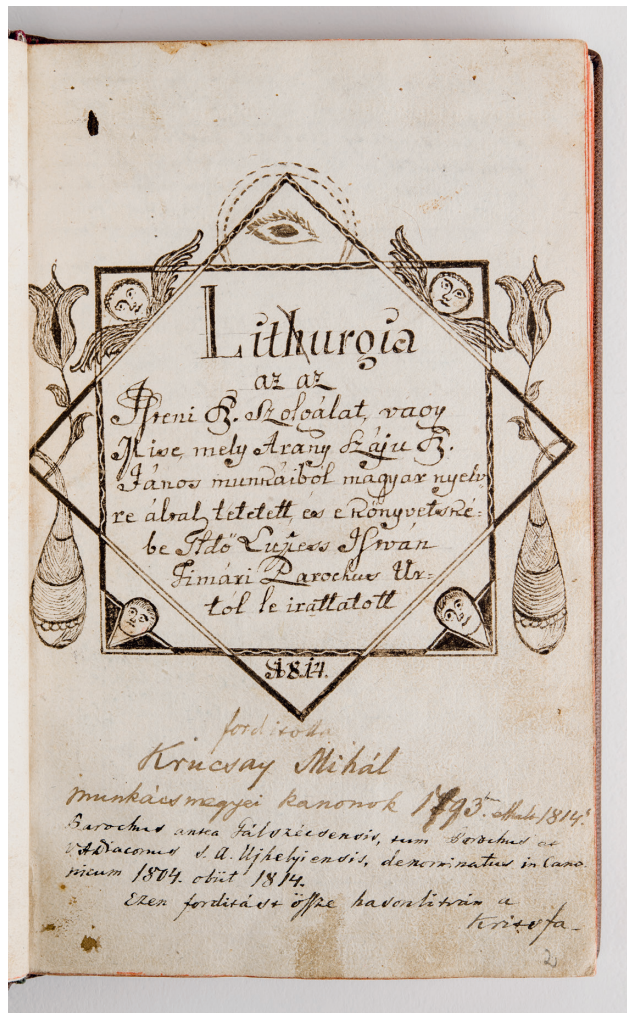 Lithurgia
az az
Isteni Sz. Szolgálat, vagy
Mise, mely Arany Száju Sz.
János munkáiból magyar nyelv,
re által tetetett, és e könyvetské-
be Fő Lupess István
Timári Parochus Ur-
tól le irattatott
1814.
fordította
Krucsay Mihál
munkácsmegyei kanonok 1793. 1814.
Parochus antea Gálszécsensis, tum Parochus ac
V.ADiaconus S. A. Ujhelyiensis, denominatus in Cano-
nicum 1804. obiit 1814.
Ezen fordítást össze hasonlitván a
Kritsfa-
2